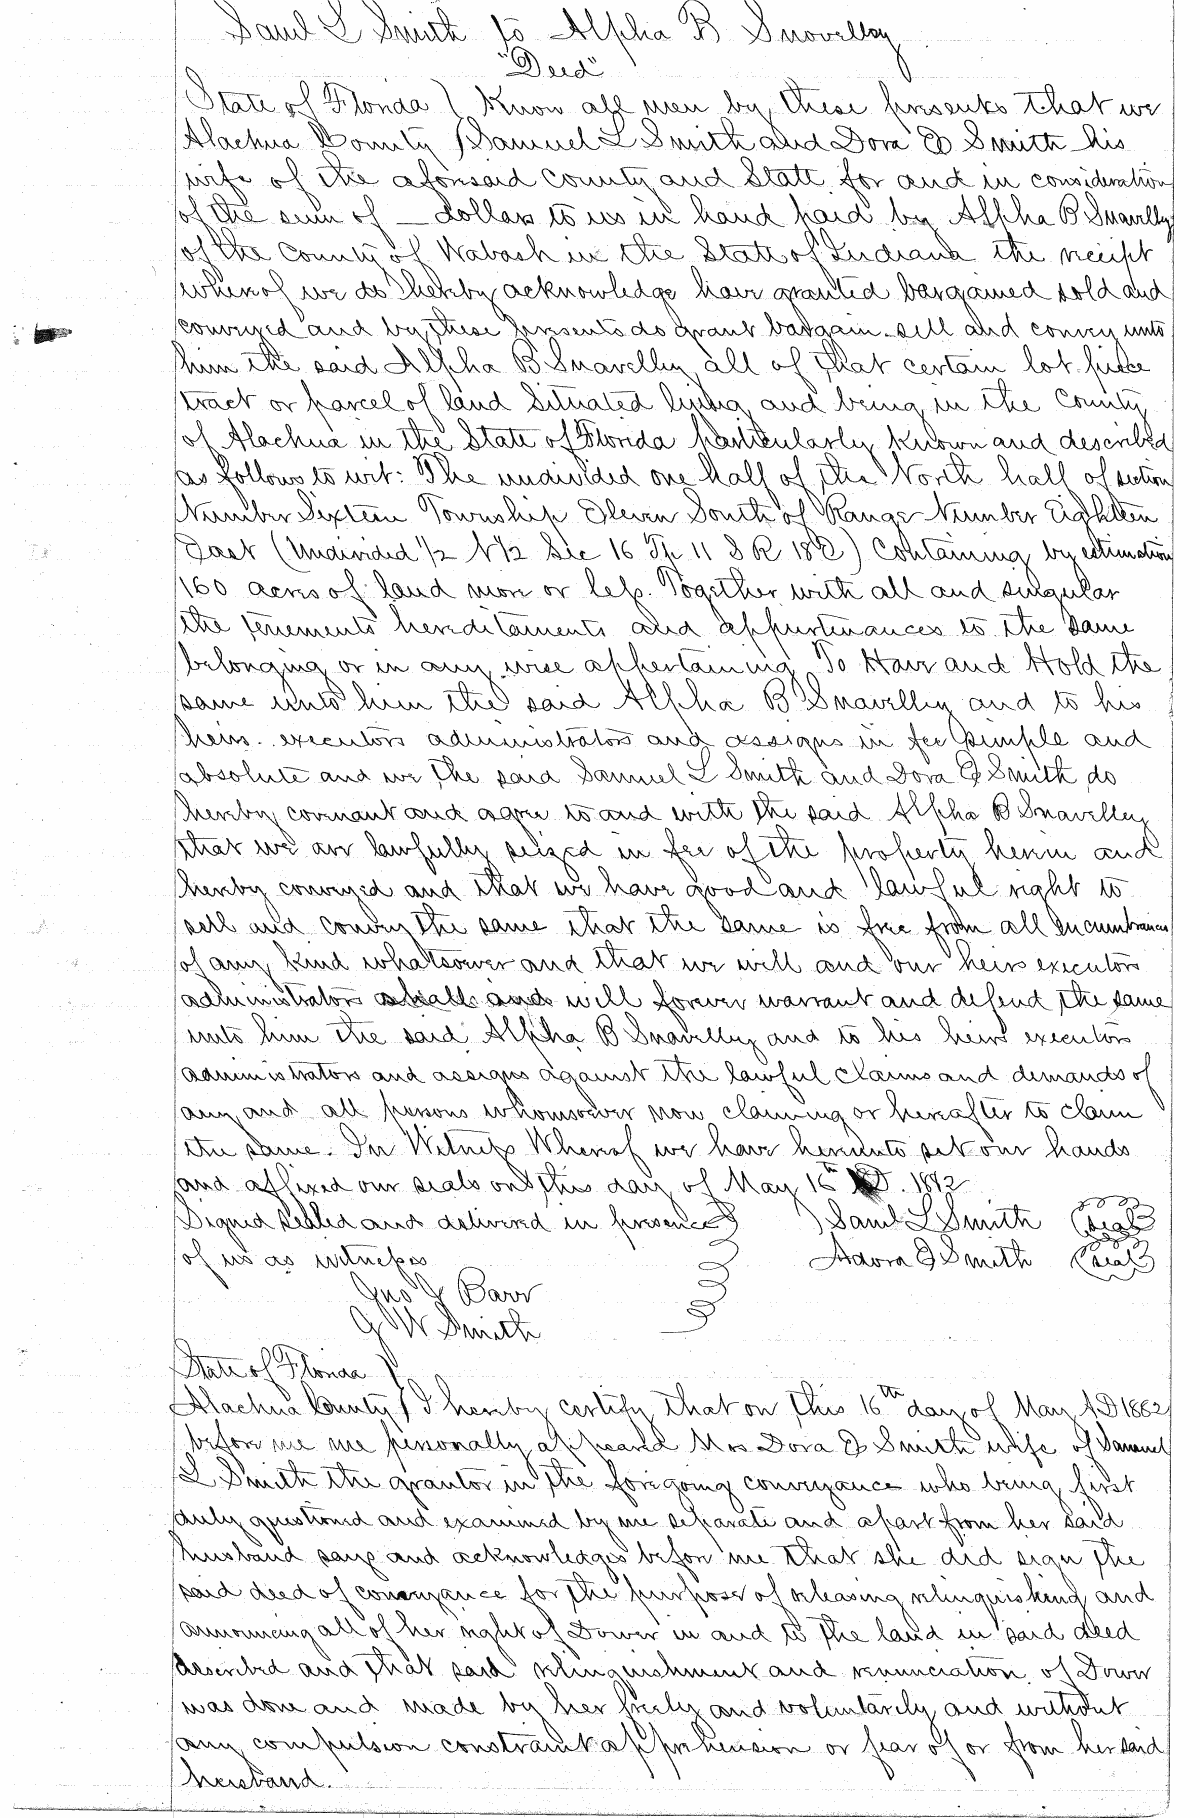 Saml L Smith to Alpha B Snovelley
"Deed"
State of Florida } Know all men by these presents that we
Alachua County } Samuel L Smith and Dora E Smith his
wife of the aforesaid County and State for and in consideration
of the sum of — dollars to us in hand paid by Alpha B Snavelley
of the County of Wabash in the State of Indiana the receipt
whereof we do hereby acknowledge have granted bargained sold and
conveyed and by these presents do grant bargain sell and convey unto
him the said Alpha B Snavelley all of that certain lot piece
tract or parcel of land Situated lying and being in the County
of Alachua in the State of Florida particularly known and described
as follows to wit: The undivided one half of the North half of section
Number Sixteen Township Eleven South of Range Number Eighteen
East (Undivided 1/2 N 1/2 Sec 16 Tp 11 S R 18 E) Containing by estimation
160 acres of land more or less. Together with all and singular
the tenements hereditaments and appurtenances to the same
belonging or in any wise appertaining To Have and Hold the
same unto him the said Alpha B Snavelley and to his
heirs executors administrators and assigns in fee simple and
absolute and we the said Samuel L Smith and Dora E Smith do
hereby covenant and agree to and with the said Alpha B Snavelley
that we are lawfully seized in fee of the property herein and
hereby conveyed and that we have good and lawful right to
sell and convey the same that the same is free from all Incumbrances
of any kind whatsoever and that we will and our heirs executors
administrators shall and will forever warrant and defend the same
unto him the said Alpha B Snavelley and to his heirs executors
administrators and assigns against the lawful claims and demands of
any and all persons whomsoever now claiming or hereafter to claim
the same. In Witness Whereof we have hereunto set our hands
and affixed our seals on this day of May 16th AD. 1882
Signed sealed and delivered in presence } Saml L Smith (seal)
of us as witness Adora E Smith (seal)
Jno J Barr
G W Smith
State of Florida }
Alachua County } I hereby certify that on this 16th day of May AD 1882
before me me personally appeard Mrs Dora E Smith wife of Samuel
L Smith the grantor in the foregoing conveyance who being first
duly questioned and examined by me separate and apart from her said
husband says and acknowledges before me that she did sign the
said deed of conveyance for the purpose of releasing relinquishing and
announcing all of her right of Dower in and to the land in said deed
described and that said relinquishment and renunciation of Dower
was done and made by her freely and voluntarily and without
any compulsion constraint apprehension or fear of or from her said
husband.